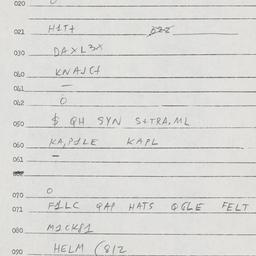 020
021 H1T+
030 DAXL3X
0b0 KNAJC+
0b1 —
0b2 O
050 $ QH SYN S+TRA,ML
060 KA,P1LE KAPL
061 —
070 O
071 F1LC QAP HATS QGLE FELT
080 M1CKP1
090 HELM (8/2